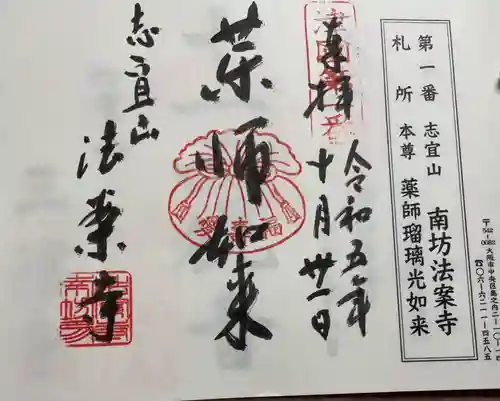 奉拝
令和五年
十月廿一日
薬師如来
志宜山
法案寺
第一番 志宜山 南坊法案寺
札所 本尊 薬師瑠璃光如来
〒542-0082 大阪市中央区島之内2-10-14
☎〇六-六二一一-四五八五